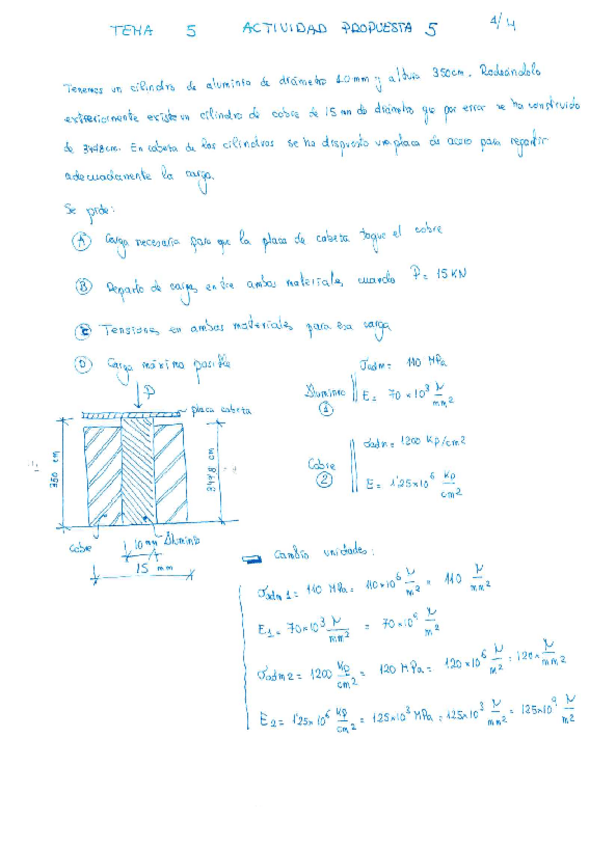 TEMA 5 ACTIVIDAD PROPUESTA 5 1/4
Tenemos un cilindro de aluminio de diámetro 10mm y altura 350cm. Rodeándolo
exteriormente existe un cilindro de cobre de 15 mm de diámetro que por error se ha construido
de 349'8cm. En cabeza de los cilindros se ha dispuesto una placa de acero para repartir
adecuadamente la carga.
Se pide:
A Carga necesaria para que la placa de cabeza toque el cobre
B Reparto de cargas entre ambos materiales, cuando P= 15 KN
C Tensiones en ambos materiales para esa carga
D Carga máxima posible
P
placa cabeza
350 cm
349'8 cm
Cobre
10mm Aluminio
15 mm
Aluminio
1
σadm= 110 MPa
E= 70 × 10³ N/mm²
Cobre
2
σadm= 1200 Kp/cm²
E= 1'25×10⁶ Kp/cm²
Cambio unidades:
σadm1= 110 MPa= 110×10⁶ N/m² = 110 N/mm²
E1= 70×10³ N/mm² = 70×10⁹ N/m²
σadm2= 1200 Kp/cm² = 120 MPa= 120×10⁶ N/m² = 120 N/mm²
E2= 1'25×10⁶ Kp/cm² = 125×10³ MPa= 125×10³ N/mm² = 125×10⁹ N/m²